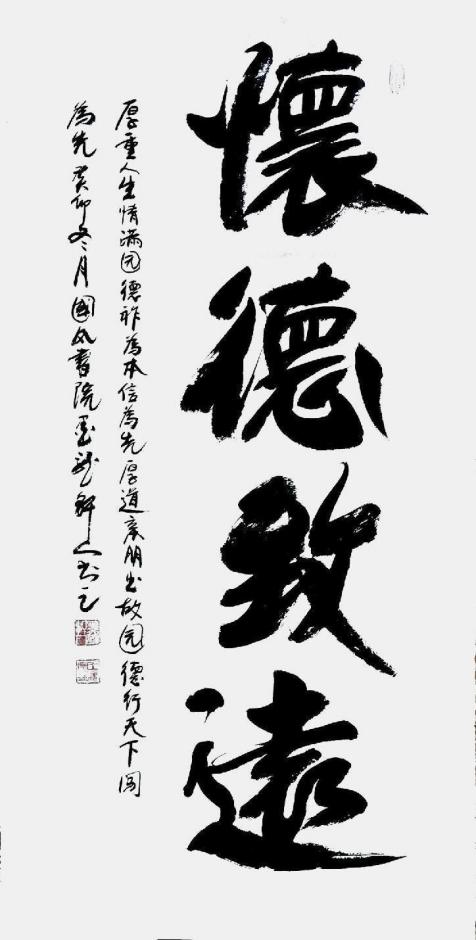 懷德致遠
厚重人生情满园德祚為本信為先厚道亲朋出故园德行天下闯
為先癸卯冬月國風書院墨龍軒人书之